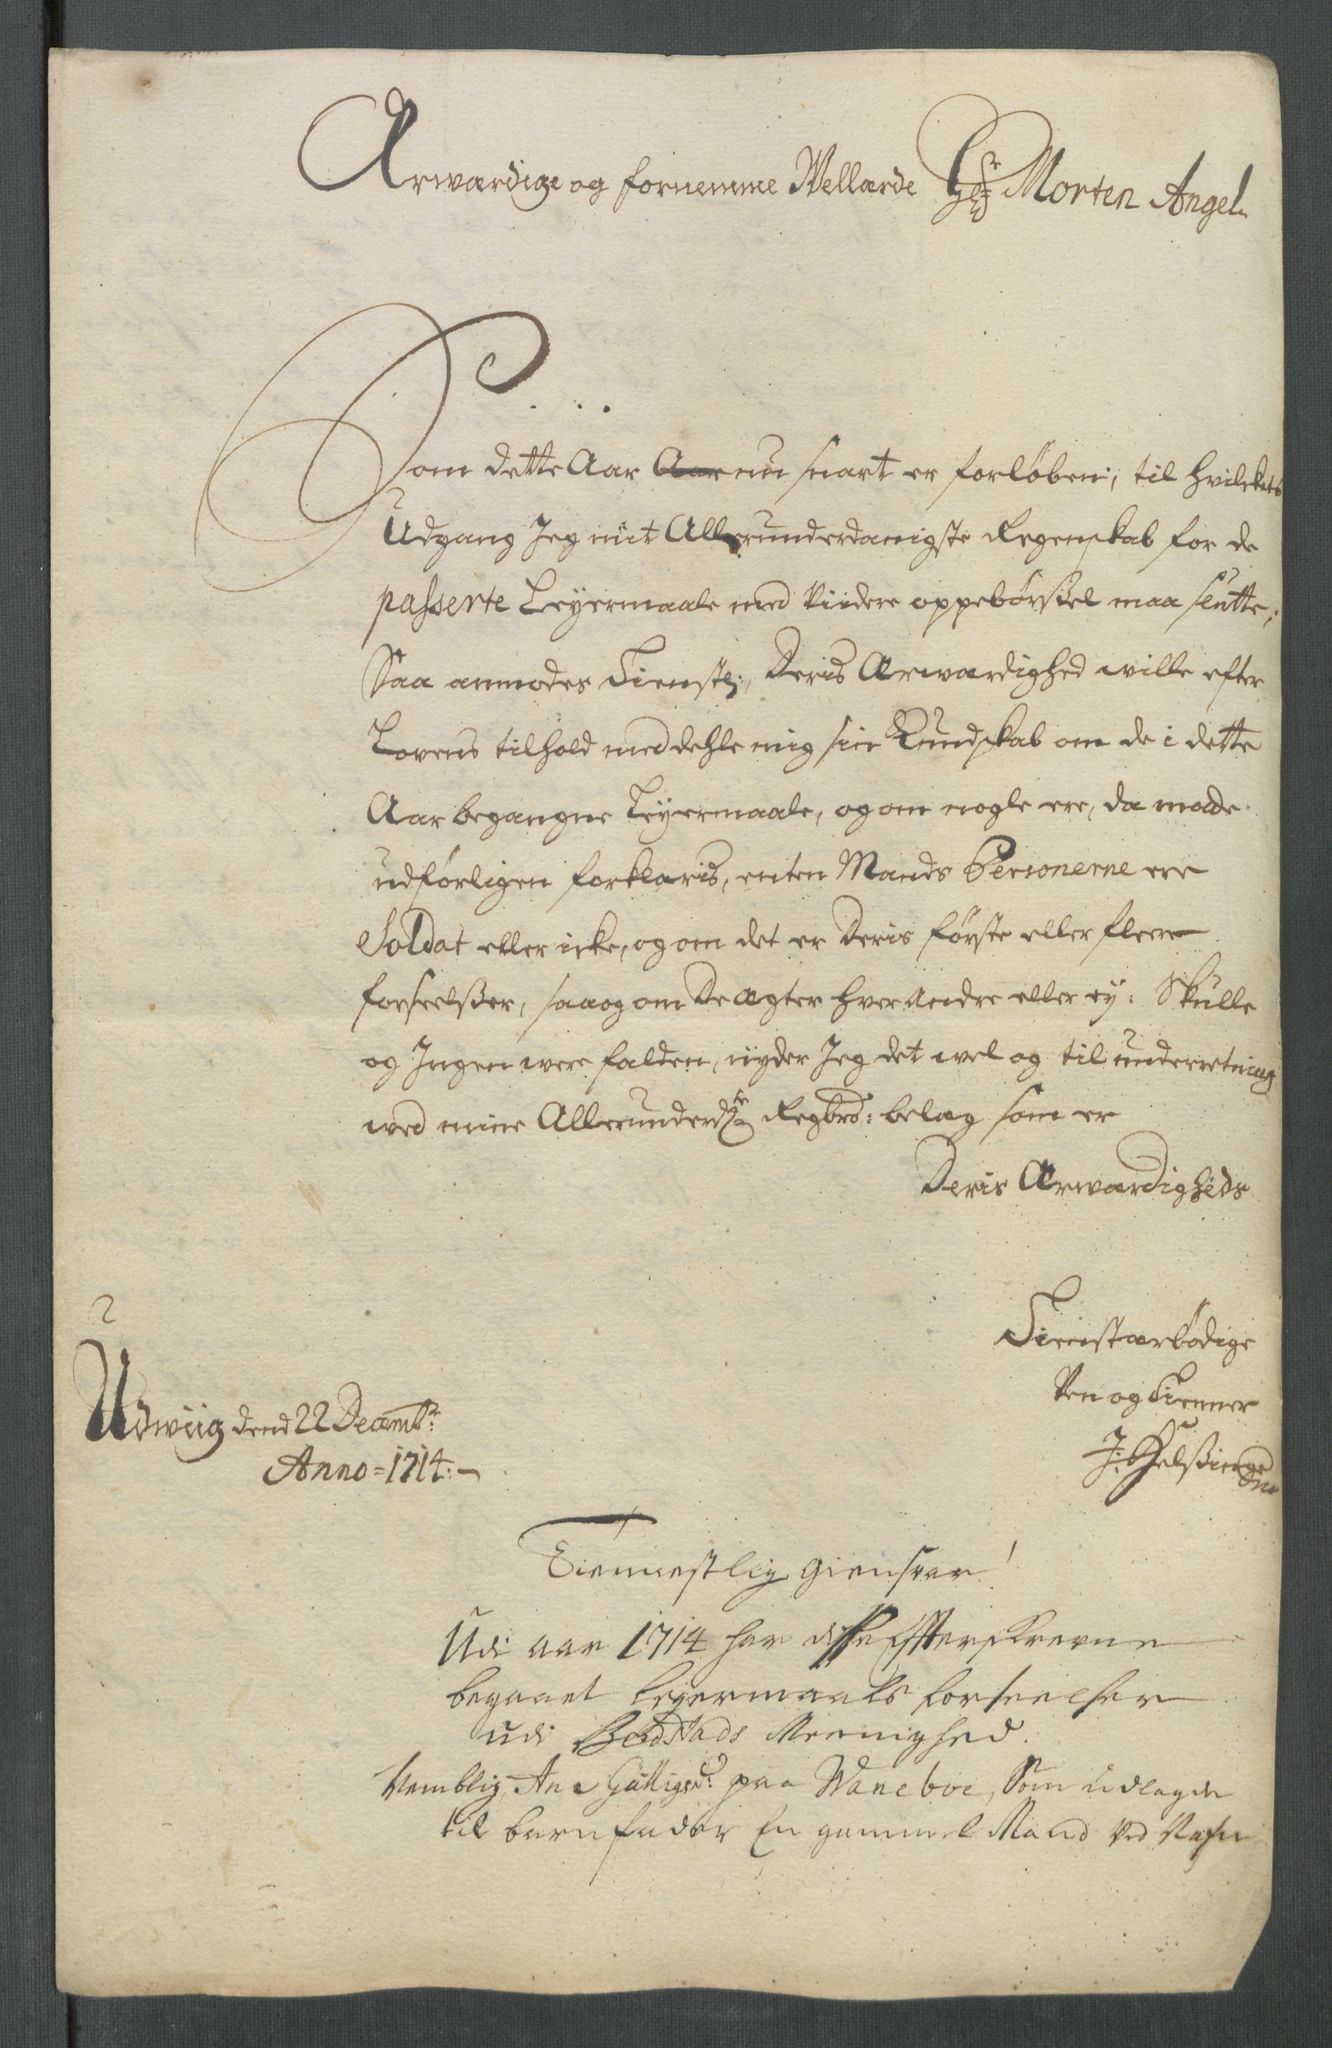 Ærwærdige og fornemme Wellærde Hr: Morten Angel
Som dette Aar Aar nu snart er forløben, til hvilckets
Udgang Jeg mit Allerunderdanigste Regenskab for de
passerte Leyermaale med Viidere oppebørssel maa slutte;
Saa anmodes Tienstl:, Deris Ærwærdighed wille efter
Lovens tilhold meddehle mig sin Kundskab om de i dette
Aar begangne Leyermaale, og om nogle ere, da maade
udførligen forklaris, enten Mands Personerne ere
Soldat eller icke, og om det er Deris første eller flere
forseelsser, saa og om De ægter hverandre eller ey: Skulle
og Ingen were falden, nyder Jeg det wel og til underretning
wed mine Allerunderd: Regbrs: belæg som er
Deris Ærwærdigheds
Tienstærbødige
Ven og Tienner
Udwiig dend 22 Decembr:
Anno = 1714:
J: Helssing
Tiennestlig giensvar!
Udi aar 1714 har disse Effterskrevne
begaaet leyermaals forseelser
udi Menighed.
Nemblig An Gulligsd: paa Waneboe, Som udlagde
til barnfader En gammel Mand ved Nafn